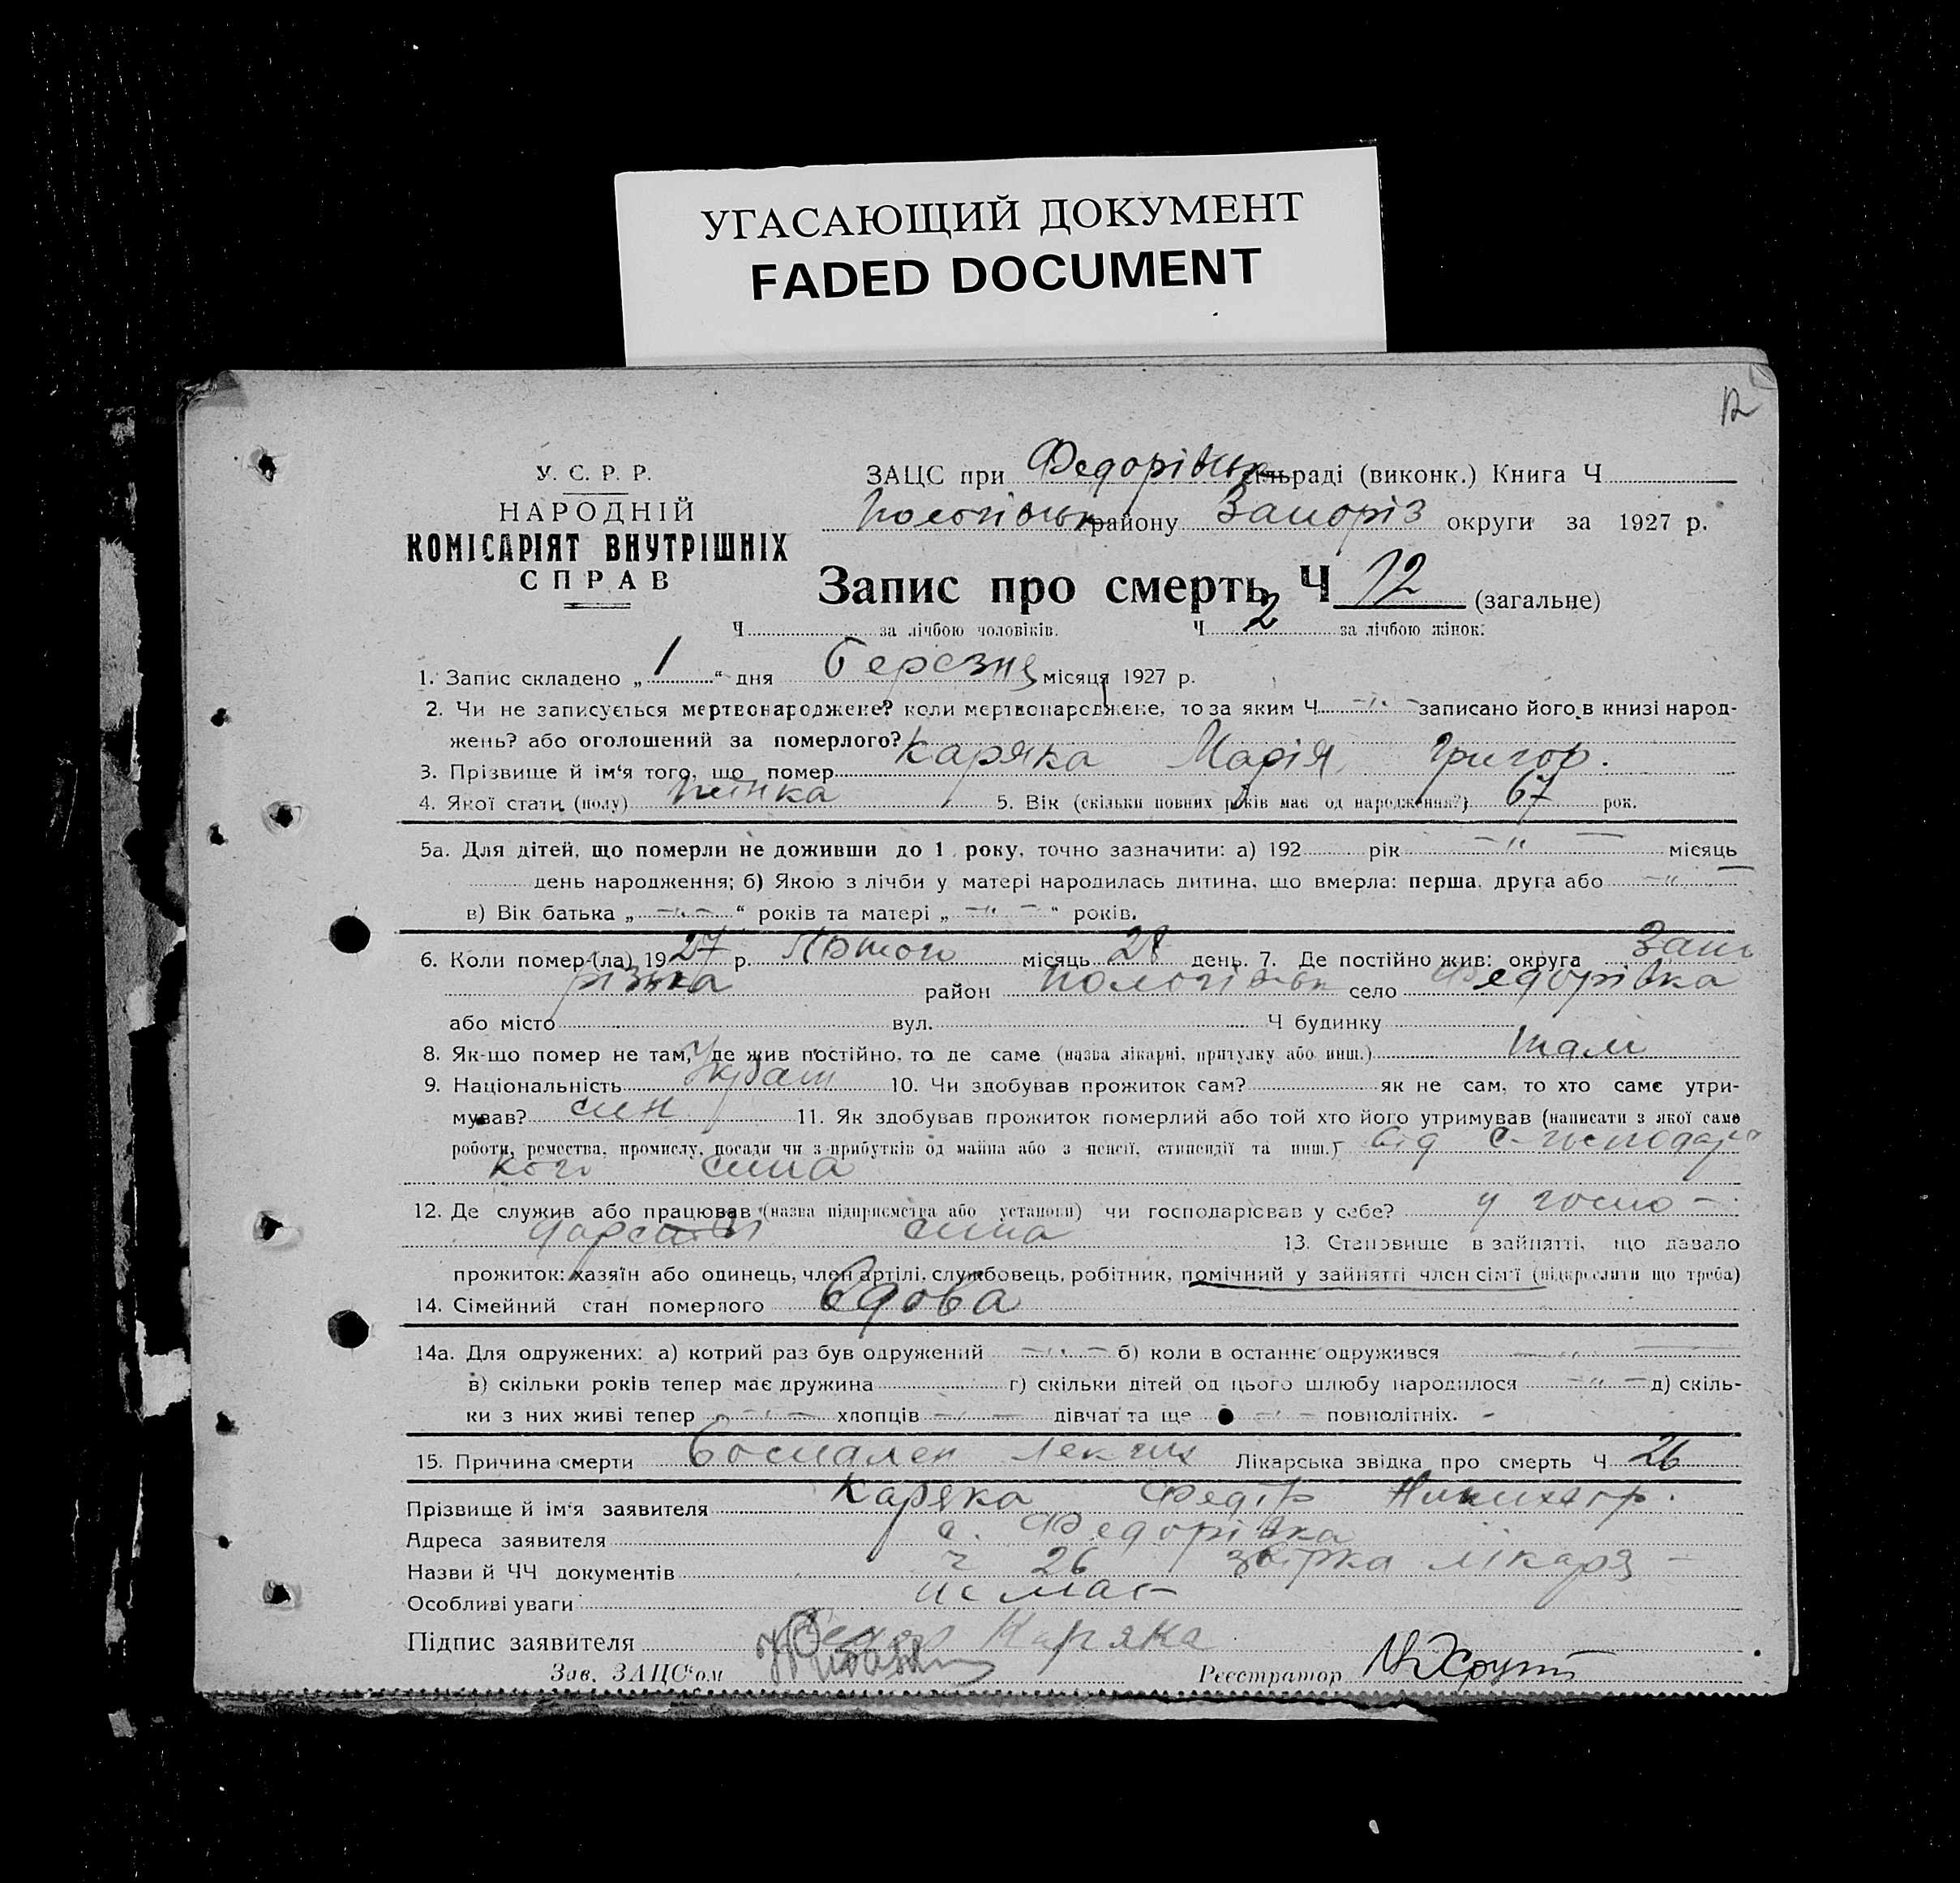 УГАСАЮЩИЙ ДОКУМЕНТ
FADED DOCUMENT
12
У. С. Р. Р.
НАРОДНІЙ
КОМІСАРІЯТ ВНУТРІШНІХ
СПРАВ
ЗАЦС при Федорівськ сільраді (виконк.) Книга Ч
Пологівськ району Запоріз округи за 1927 р.
Запис про смерть Ч 12 (загальне)
Ч за лічбою чоловіків. Ч 2 за лічбою жінок.
1. Запис складено „ 1 “ дня березня місяця 1927 р.
2. Чи не записується мертвонароджене? коли мертвонароджене, то за яким Ч -"- записано його в книзі народ-
жень? або оголошений за померлого?
3. Прізвище й ім‘я того, що помер Каряка Марія Григор.
4. Якої стати (полу) жінка 5. Вік (скільки повних років має од народження?) 67 рок.
5а. Для дітей, що померли не доживши до 1 року, точно зазначити: а) 192 рік -"- місяць
день народження; б) Якою з лічби у матері народилась дитина, що вмерла: перша, друга або -"-
в) Вік батька „ -"- “ років та матері „ -"- “ років.
6. Коли помер (ла) 1927 р. Лютого місяць 28 день. 7. Де постійно жив: округа Запо
різька район Пологівськ село Федорівка
або місто вул. Ч будинку
8. Як-що помер не там, де жив постійно, то де саме (назва лікарні, притулку або инш.) там
9. Національність Україн 10. Чи здобував прожиток сам? як не сам, то хто саме утри-
мував? син 11. Як здобував прожиток померлий або той хто його утримував (написати з якої саме
роботи, ремества, промислу, посади чи з прибутків од майна або з пенсії, стипендії та инш.) від с-господарс
кого сина
12. Де служив або працював (назва підприємства або установи) чи господарював у себе? у госпо-
дарстві сина 13. Становище в зайнятті, що давало
прожиток: хазяїн або одинець, член артілі, службовець, робітник, помічний у зайнятті член сім‘ї (підкреслити що треба)
14. Сімейний стан померлого вдова
14а. Для одружених: а) котрий раз був одружений -"- б) коли в останнє одружився -"-
в) скільки років тепер має дружина г) скільки дітей од цього шлюбу народилося -"- д) скіль-
ки з них живі тепер -"- хлопців -"- дівчат та ще -"- повнолітніх.
15. Причина смерти Воспален Легких Лікарська звідка про смерть Ч 26
Прізвище й ім‘я заявителя Каряка Федір
Адреса заявителя с. Федорівка
Назви й ЧЧ документів ч 26 лікаря
Особливі уваги немає
Підпис заявителя Федор Каряка
Зав. ЗАЦС‘ом
Реєстратор